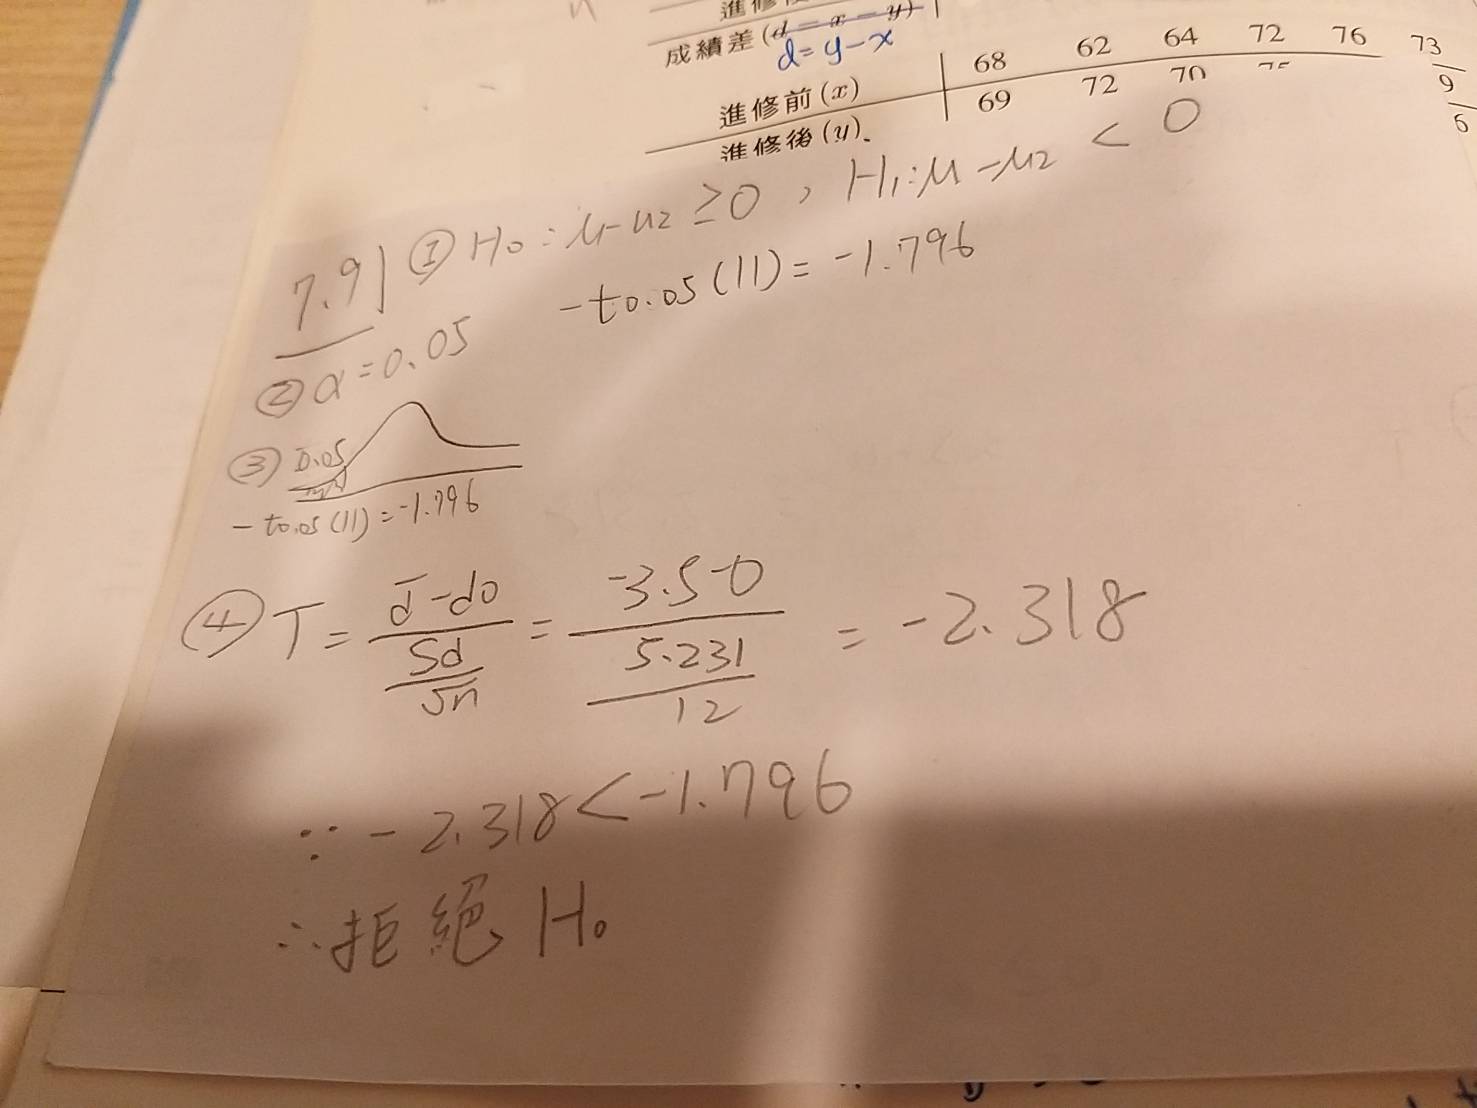 成績差(d = x - y)
d=y-x
進修前(x) 68 62 64 72 76 73
進修後(y). 69 72 70 75 9
6
7.91 ① H0 : μ1-u2 ≥0 , H1:μ1-μ2 < 0
② α=0.05 -t0.05(11)= -1.796
③ 0.05
-t0.05(11)=-1.796
④ T = (d̄-d0)/(Sd/√n) = (-3.5-0)/(5.231/12) = -2.318
∵ -2.318<-1.796
∴拒絕 H0